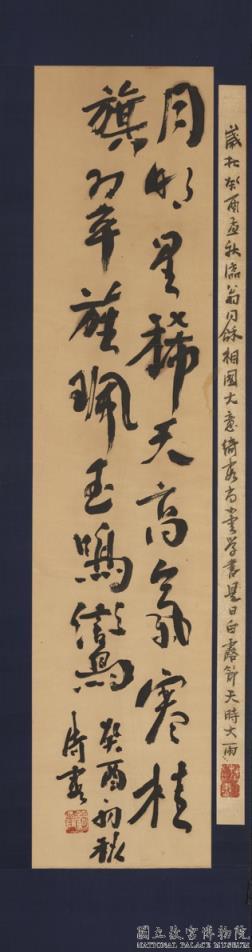 月明星稀天高氣寒桂
旗翠旌珮玉鳴鸞
癸酉初秋
歲在癸酉孟秋臨翁同龢相國大意 學書是日白露節天時大雨
國立故宮博物院
NATIONAL PALACE MUSEUM